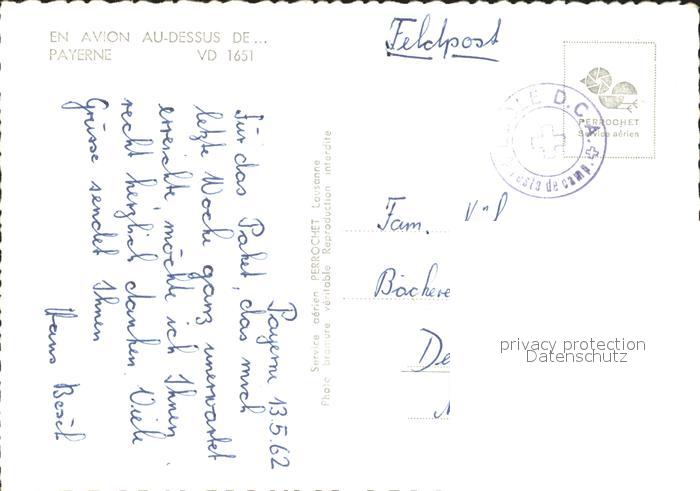 EN AVION AU-DESSUS DE...
PAYERNE VD 1651
Feldpost
PERROCHET
Service aérien
D.C.A.
Poste de camp
Payerne 13.5.62
Für das Paket, das mich
letzte Woche ganz unerwartet
erreichte möchte ich Ihnen
recht herzlich danken. Viele
Grüsse sendet Ihnen
Hans
Service aérien PERROCHET Lausanne
Photo bromure véritable Reproduction interdite
Fam.
Bäckere
De
privacy protection
Datenschutz